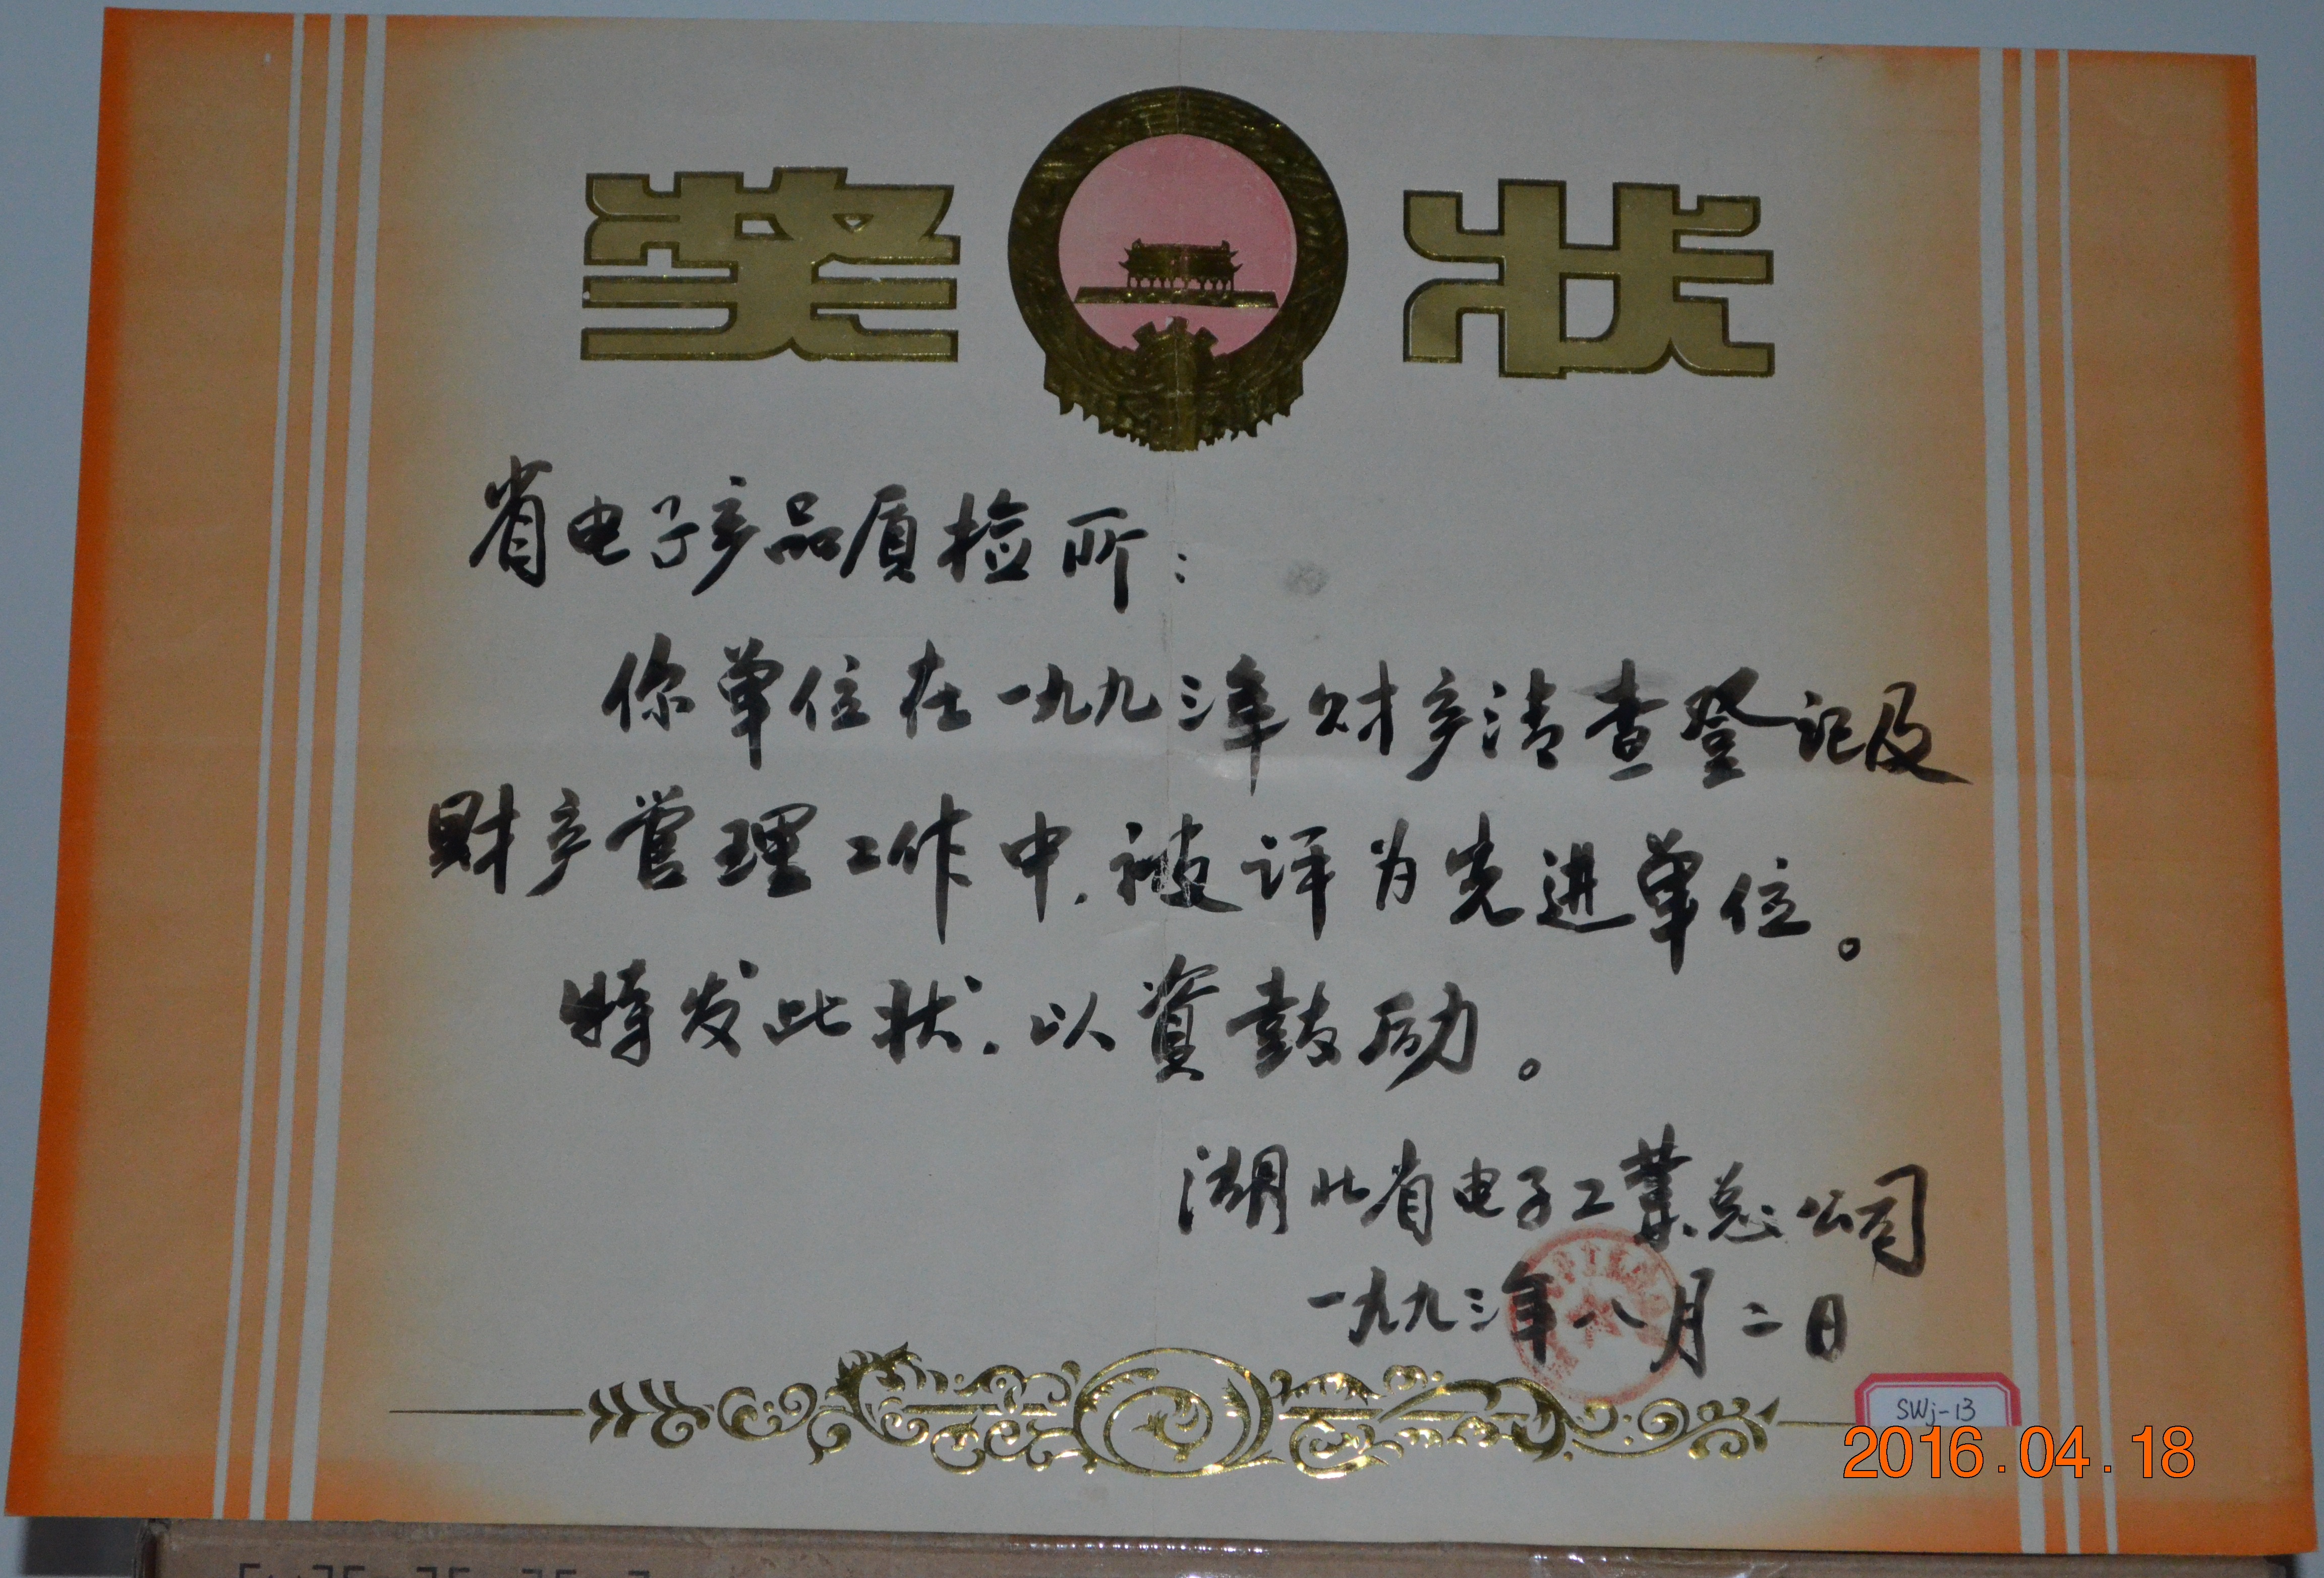 奖状
省电子产品质检所：
你单位在一九九三年财产清查登记及
财产管理工作中，被评为先进单位。
特发此状，以资鼓励。
湖北省电子工业总公司
一九九三年八月二日
SWj-13
2016.04.18